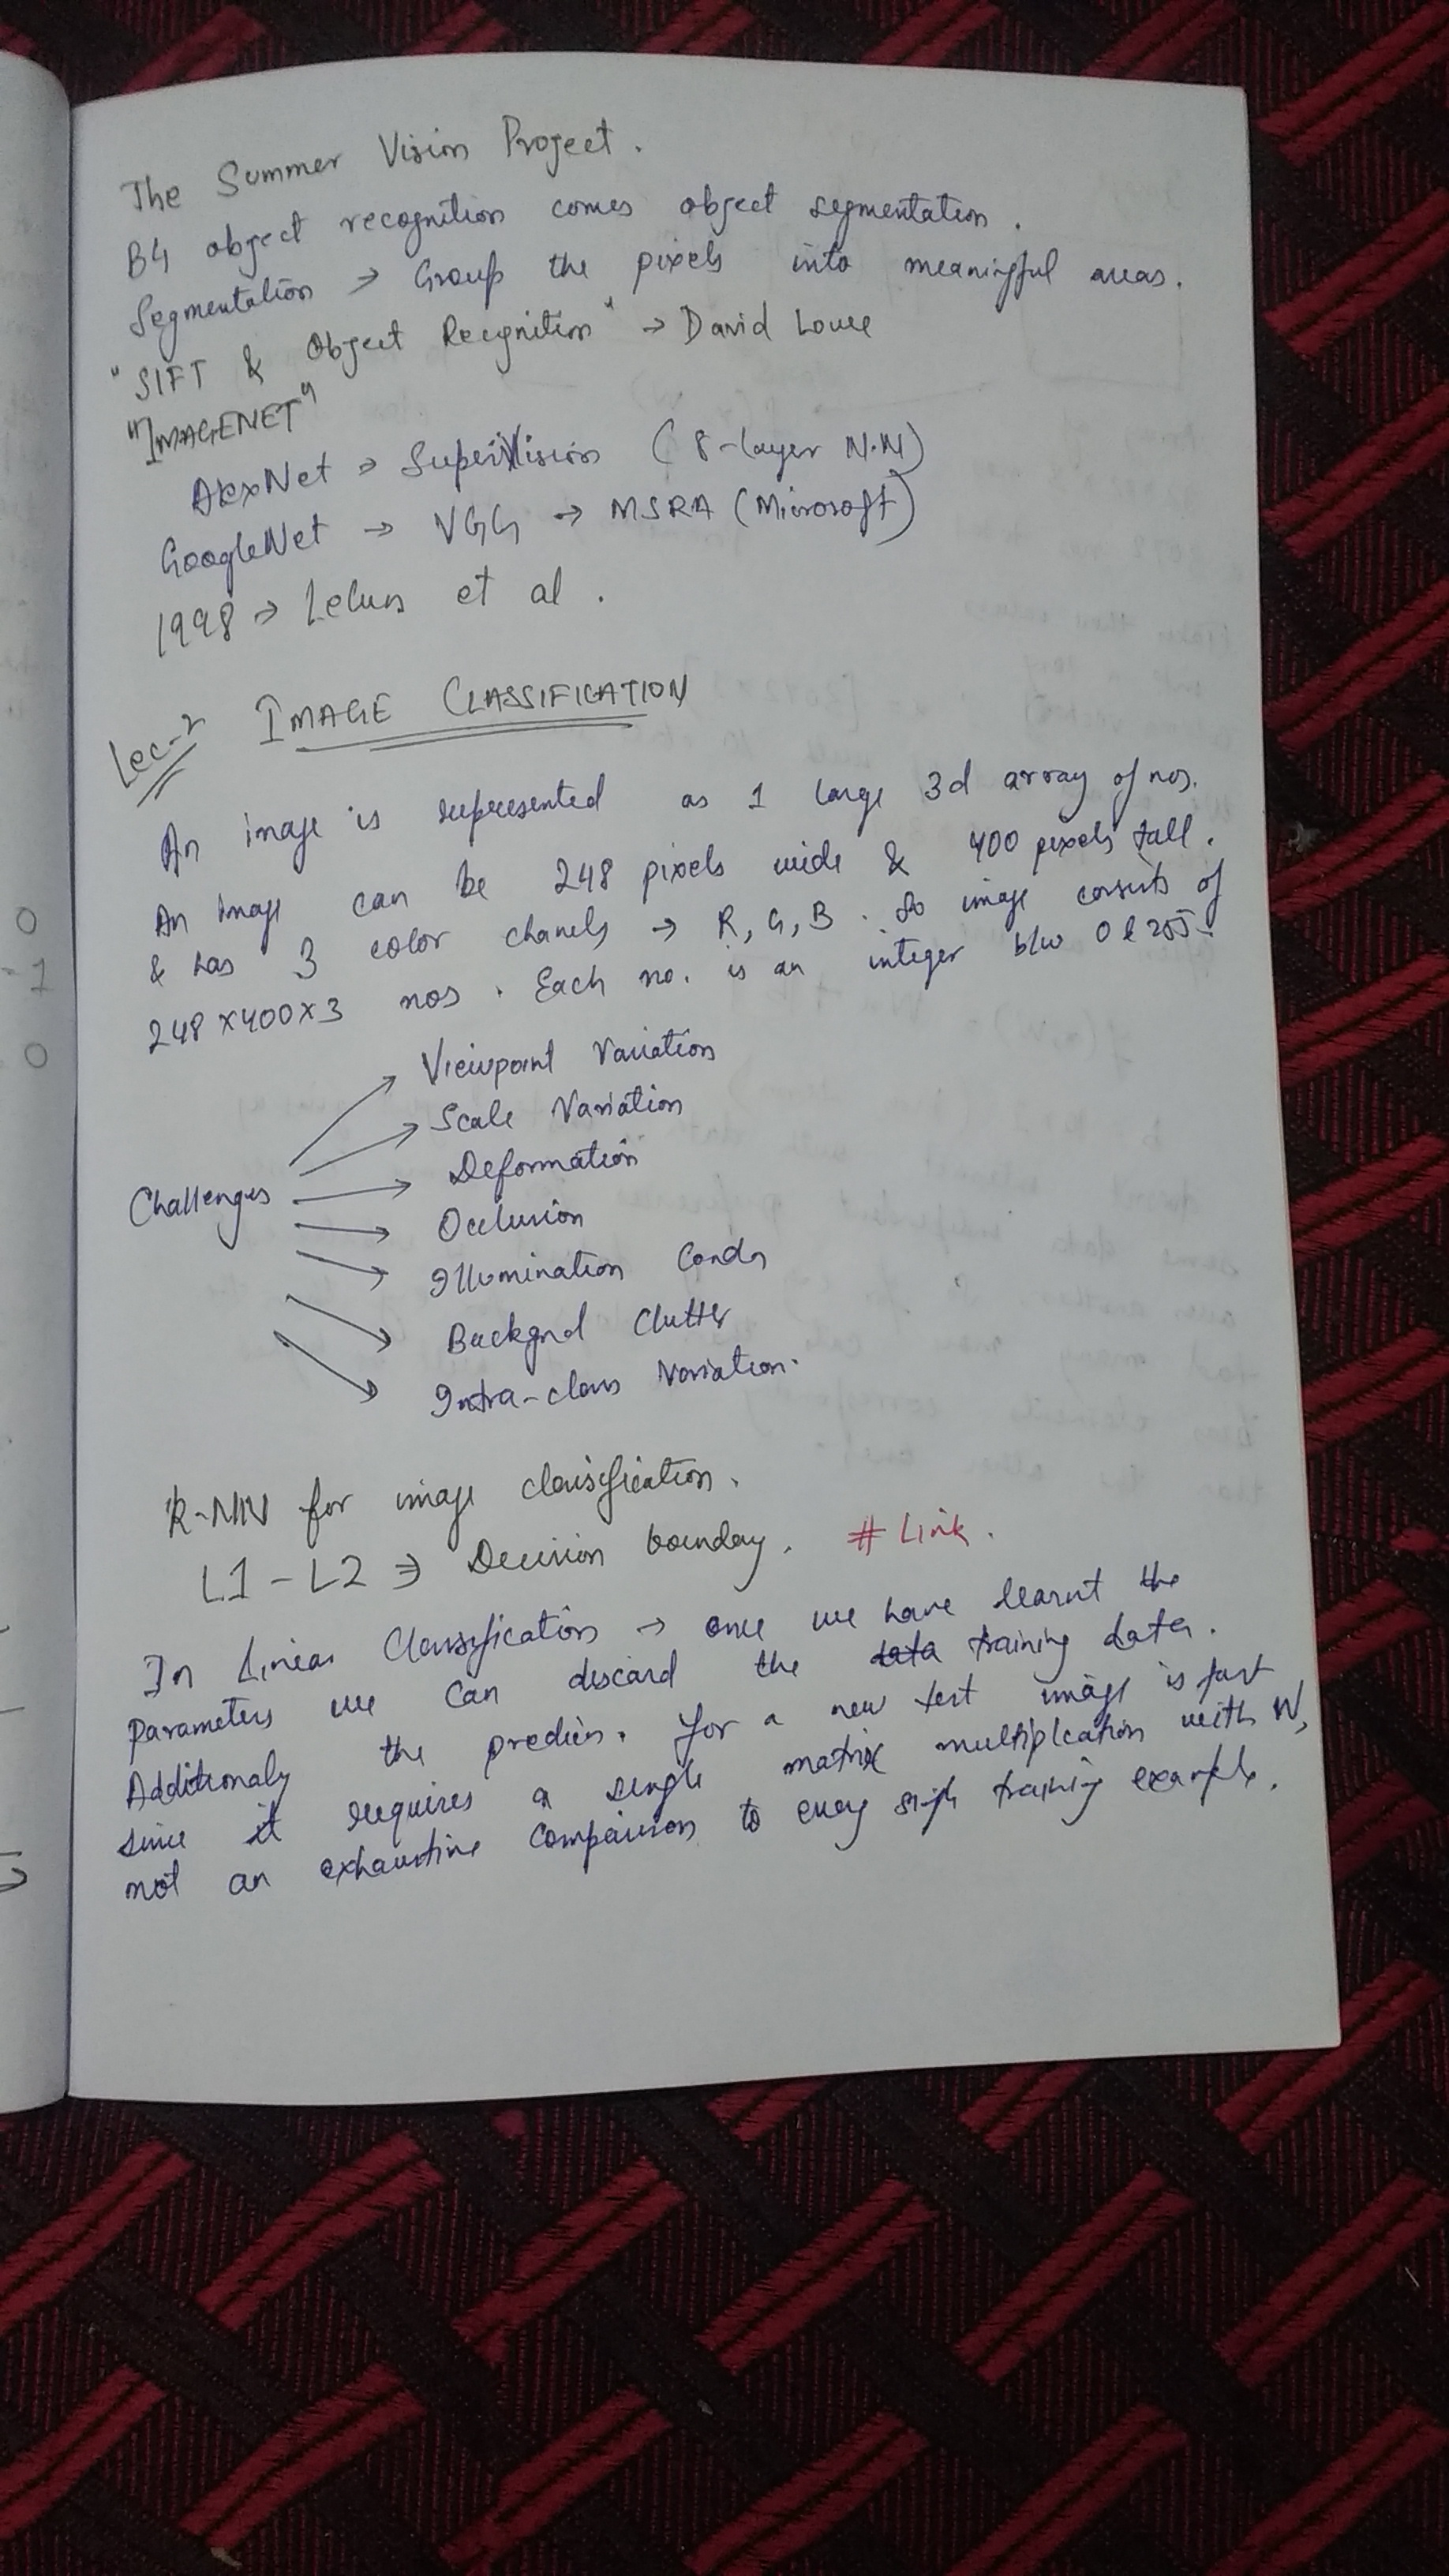 The Summer Vision Project.
B4 object recognition comes object segmentation.
Segmentation → Group the pixels into meaningful areas.
"SIFT & Object Recognition" → David Lowe
"IMAGENET"
AlexNet → SuperVision (8-layer N.N)
GoogleNet → VGG → MSRA (Microsoft)
1998 → Lecun et al.
Lec-2 IMAGE CLASSIFICATION
An image is represented as 1 large 3d array of nos.
An image can be 248 pixels wide & 400 pixels tall.
& has 3 color chanels → R, G, B. So image consists of
248×400×3 nos. Each no. is an integer b/w 0 & 255.
Challenges
→ Viewpoint Variation
→ Scale Variation
→ Deformation
→ Occlusion
→ Illumination Condn
→ Backgnd Clutter
→ Intra-class Variation.
K-NN for image classification.
L1-L2 → Decision boundary. # Link.
In Linear Classification → once we have learnt the
Parameters we can discard the data training data.
Additionaly the predicn. for a new test image is fast
since it requires a single matrix multiplication with W,
not an exhaustive comparison to every single training example.
0
1
0